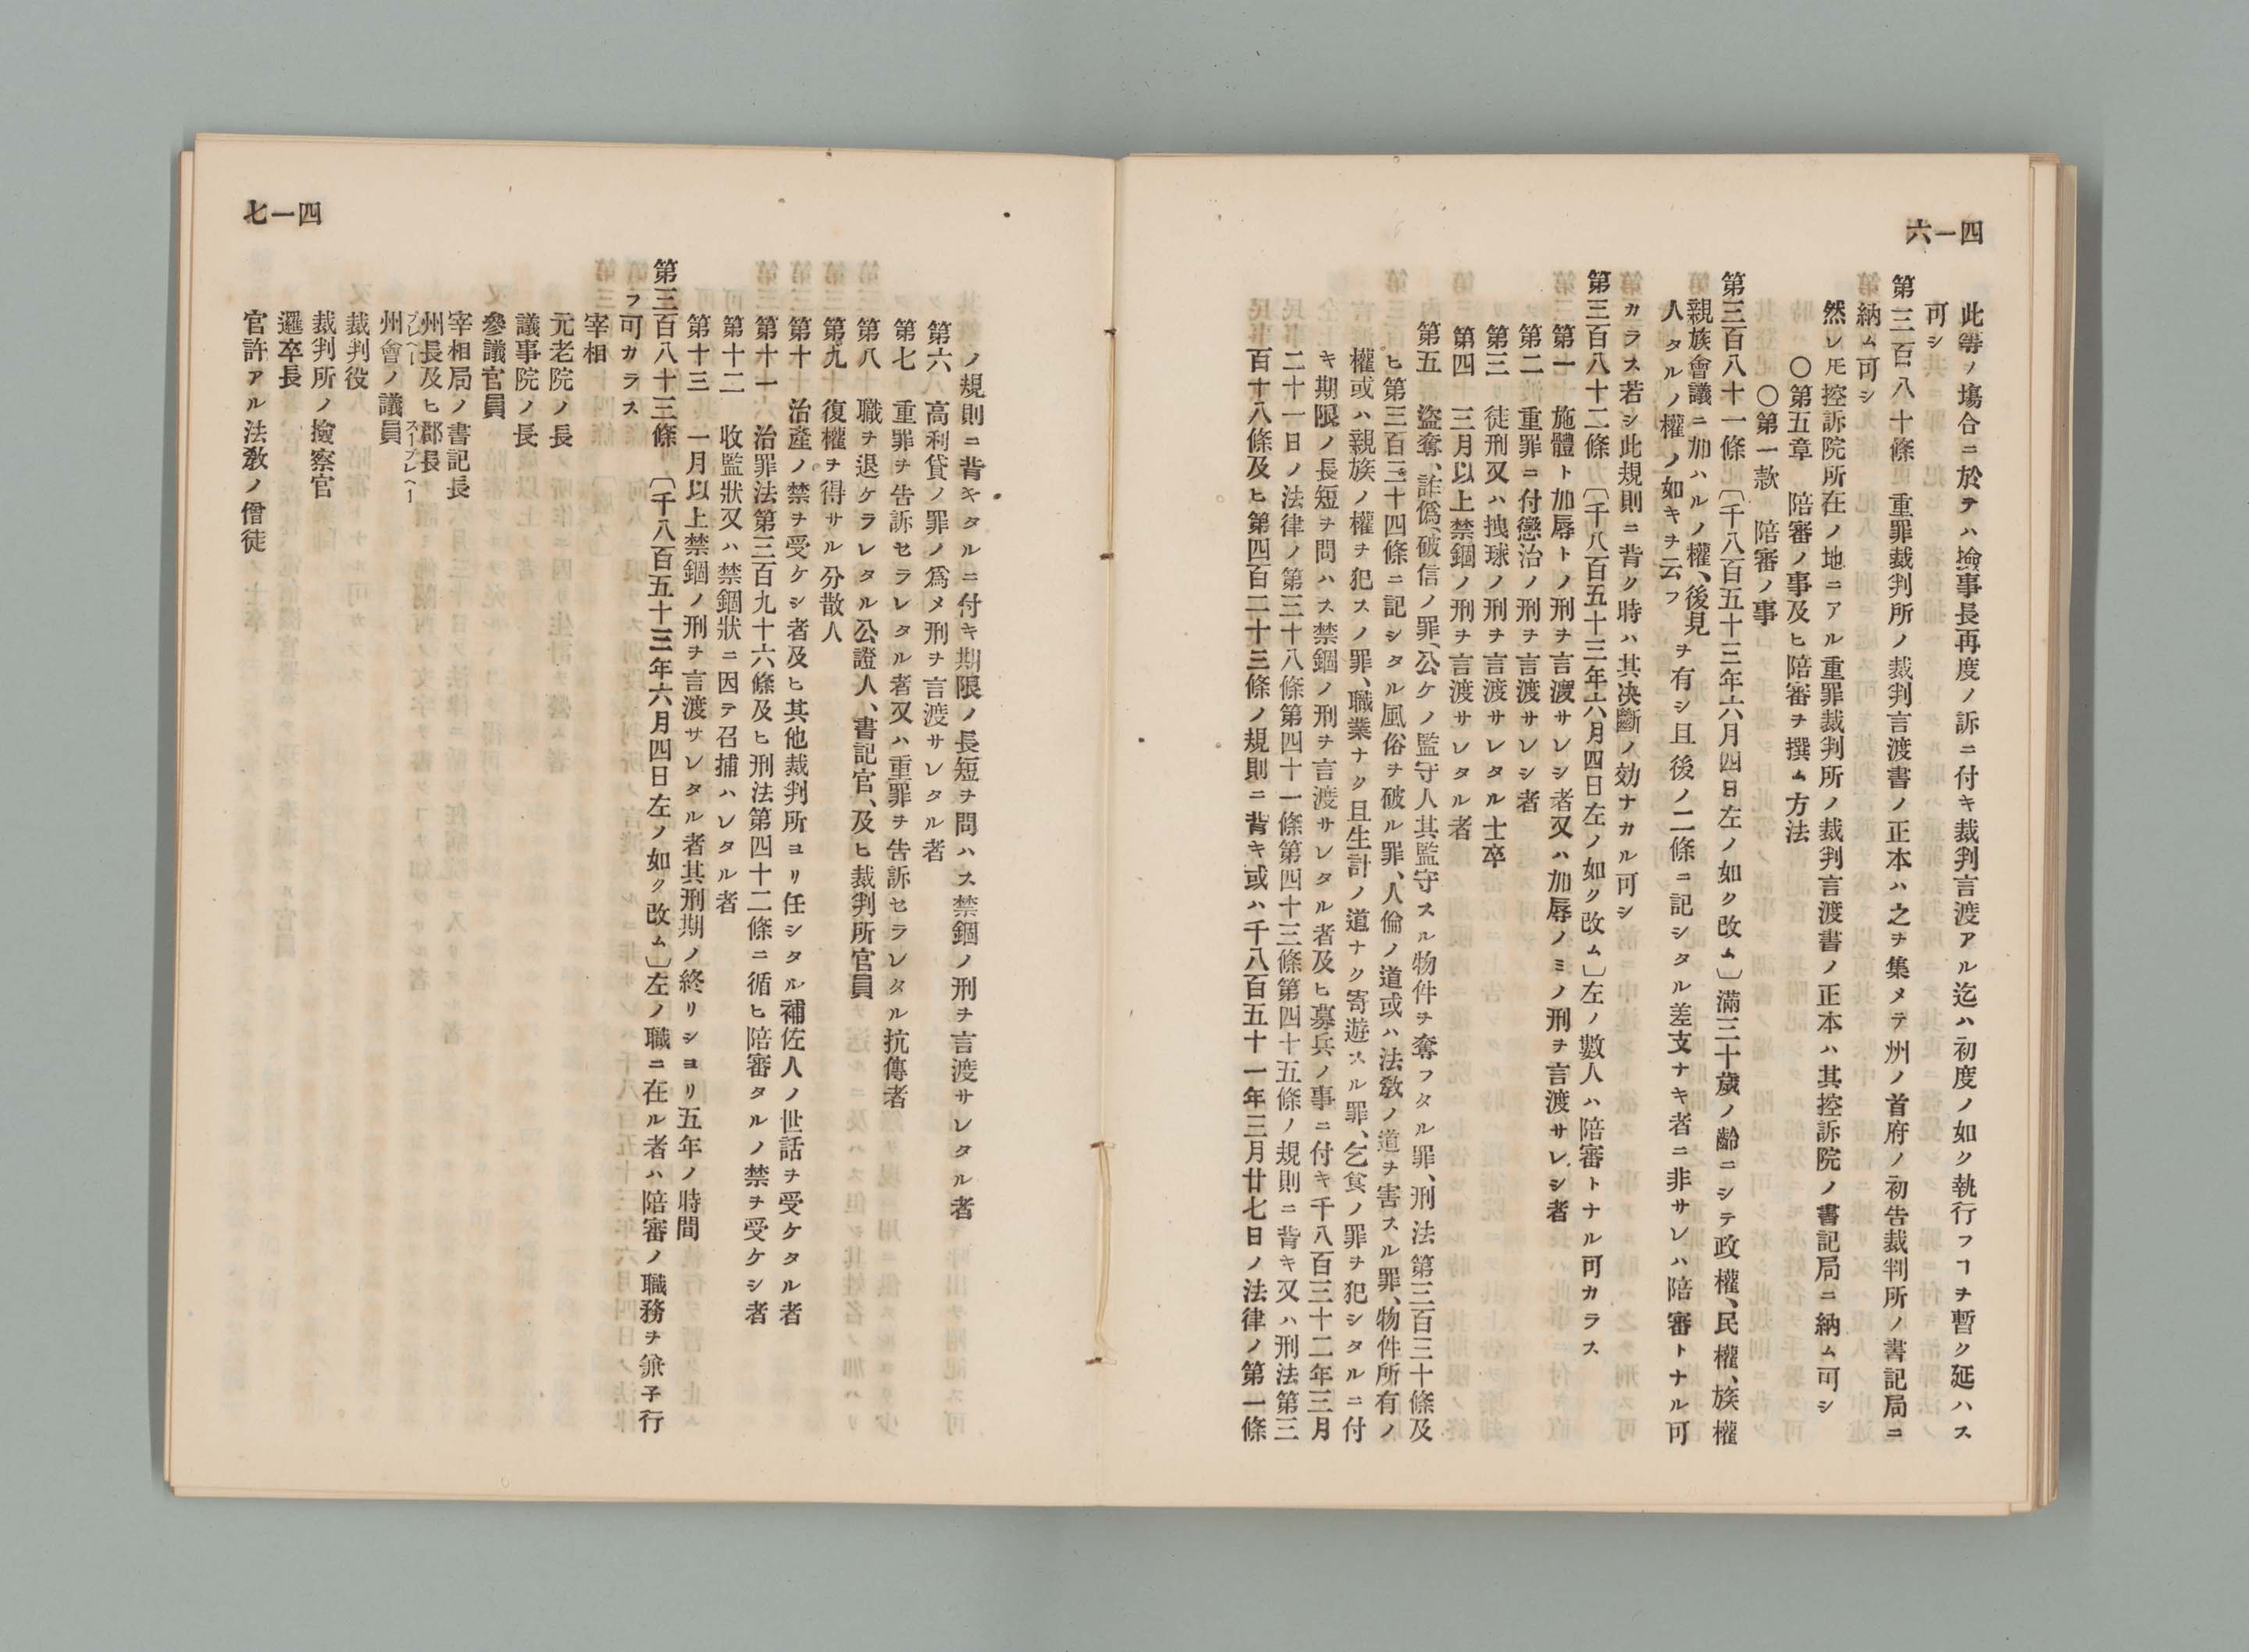 四一六
此等ノ塲合ニ於テハ撿事長再度ノ訴ニ付キ裁判言渡アル迄ハ初度ノ如ク執行フヿヲ暫ク延ハス
可シ
第三百八十條　重罪裁判所ノ裁判言渡書ノ正本ハ之ヲ集メテ州ノ首府ノ初告裁判所ノ書記局ニ
納ム可シ
然レ𪜈控訴院所在ノ地ニアル重罪裁判所ノ裁判言渡書ノ正本ハ其控訴院ノ書記局ニ納ム可シ
〇第五章　陪審ノ事及ヒ陪審ヲ撰ム方法
〇第一款　陪審ノ事
第三百八十一條　〔千八百五十三年六月四日左ノ如ク改ム〕滿三十歲ノ齡ニシテ政權、民權、族權
親族會議ニ加ハルノ權、後見
人タルノ權ノ如キヲ云フ　ヲ有シ且後ノ二條ニ記シタル差支ナキ者ニ非サレハ陪審トナル可
カラス若シ此規則ニ背ク時ハ其决斷ノ効ナカル可シ
第三百八十二條　〔千八百五十三年六月四日左ノ如ク改ム〕左ノ數人ハ陪審トナル可カラス
第一　施體ト加辱トノ刑ヲ言渡サレシ者又ハ加辱ノミノ刑ヲ言渡サレシ者
第二　重罪ニ付懲治ノ刑ヲ言渡サレシ者
第三　徒刑又ハ拽球ノ刑ヲ言渡サレタル士卒
第四　三月以上禁錮ノ刑ヲ言渡サレタル者
第五　盜奪、詐僞、破信ノ罪、公ケノ監守人其監守スル物件ヲ奪フタル罪、刑法第三百三十條及
ヒ第三百三十四條ニ記シタル風俗ヲ破ル罪、人倫ノ道或ハ法敎ノ道ヲ害スル罪、物件所有ノ
權或ハ親族ノ權ヲ犯スノ罪、職業ナク且生計ノ道ナク寄遊スル罪、乞食ノ罪ヲ犯シタルニ付
キ期限ノ長短ヲ問ハス禁錮ノ刑ヲ言渡サレタル者及ヒ募兵ノ事ニ付キ千八百三十二年三月
二十一日ノ法律ノ第三十八條第四十一條第四十三條第四十五條ノ規則ニ背キ又ハ刑法第三
百十八條及ヒ第四百二十三條ノ規則ニ背キ或ハ千八百五十一年三月廿七日ノ法律ノ第一條
四一七
ノ規則ニ背キタルニ付キ期限ノ長短ヲ問ハス禁錮ノ刑ヲ言渡サレタル者
第六　高利貸ノ罪ノ爲メ刑ヲ言渡サレタル者
第七　重罪ヲ告訴セラレタル者又ハ重罪ヲ告訴セラレタル抗傳者
第八　職ヲ退ケラレタル公證人、書記官、及ヒ裁判所官員
第九　復權ヲ得サル分散人
第十　治產ノ禁ヲ受ケシ者及ヒ其他裁判所ヨリ任シタル補佐人ノ世話ヲ受ケタル者
第十一　治罪法第三百九十六條及ヒ刑法第四十二條ニ循ヒ陪審タルノ禁ヲ受ケシ者
第十二　收監狀又ハ禁錮狀ニ因テ召捕ハレタル者
第十三　一月以上禁錮ノ刑ヲ言渡サレタル者其刑期ノ終リシヨリ五年ノ時間
第三百八十三條　〔千八百五十三年六月四日左ノ如ク改ム〕左ノ職ニ在ル者ハ陪審ノ職務ヲ兼子行
フ可カラス
宰相
元老院ノ長
議事院ノ長
參議官員
宰相局ノ書記長
州長及ヒ郡長
プレヘー　スープレヘー
州會ノ議員
裁判役
裁判所ノ撿察官
邏卒長
官許アル法敎ノ僧徒